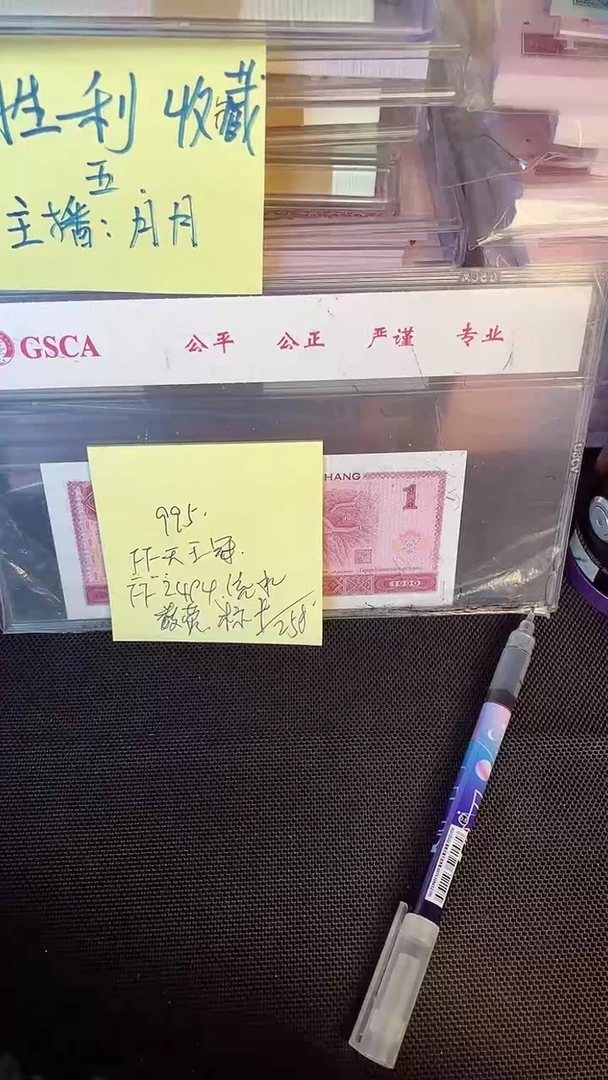 胜利 收藏
五
主播：月月
GSCA 公平 公正 严谨 专业
HANG
1
1980
995.
FF天王冠.
FF24P4.
标卡 258